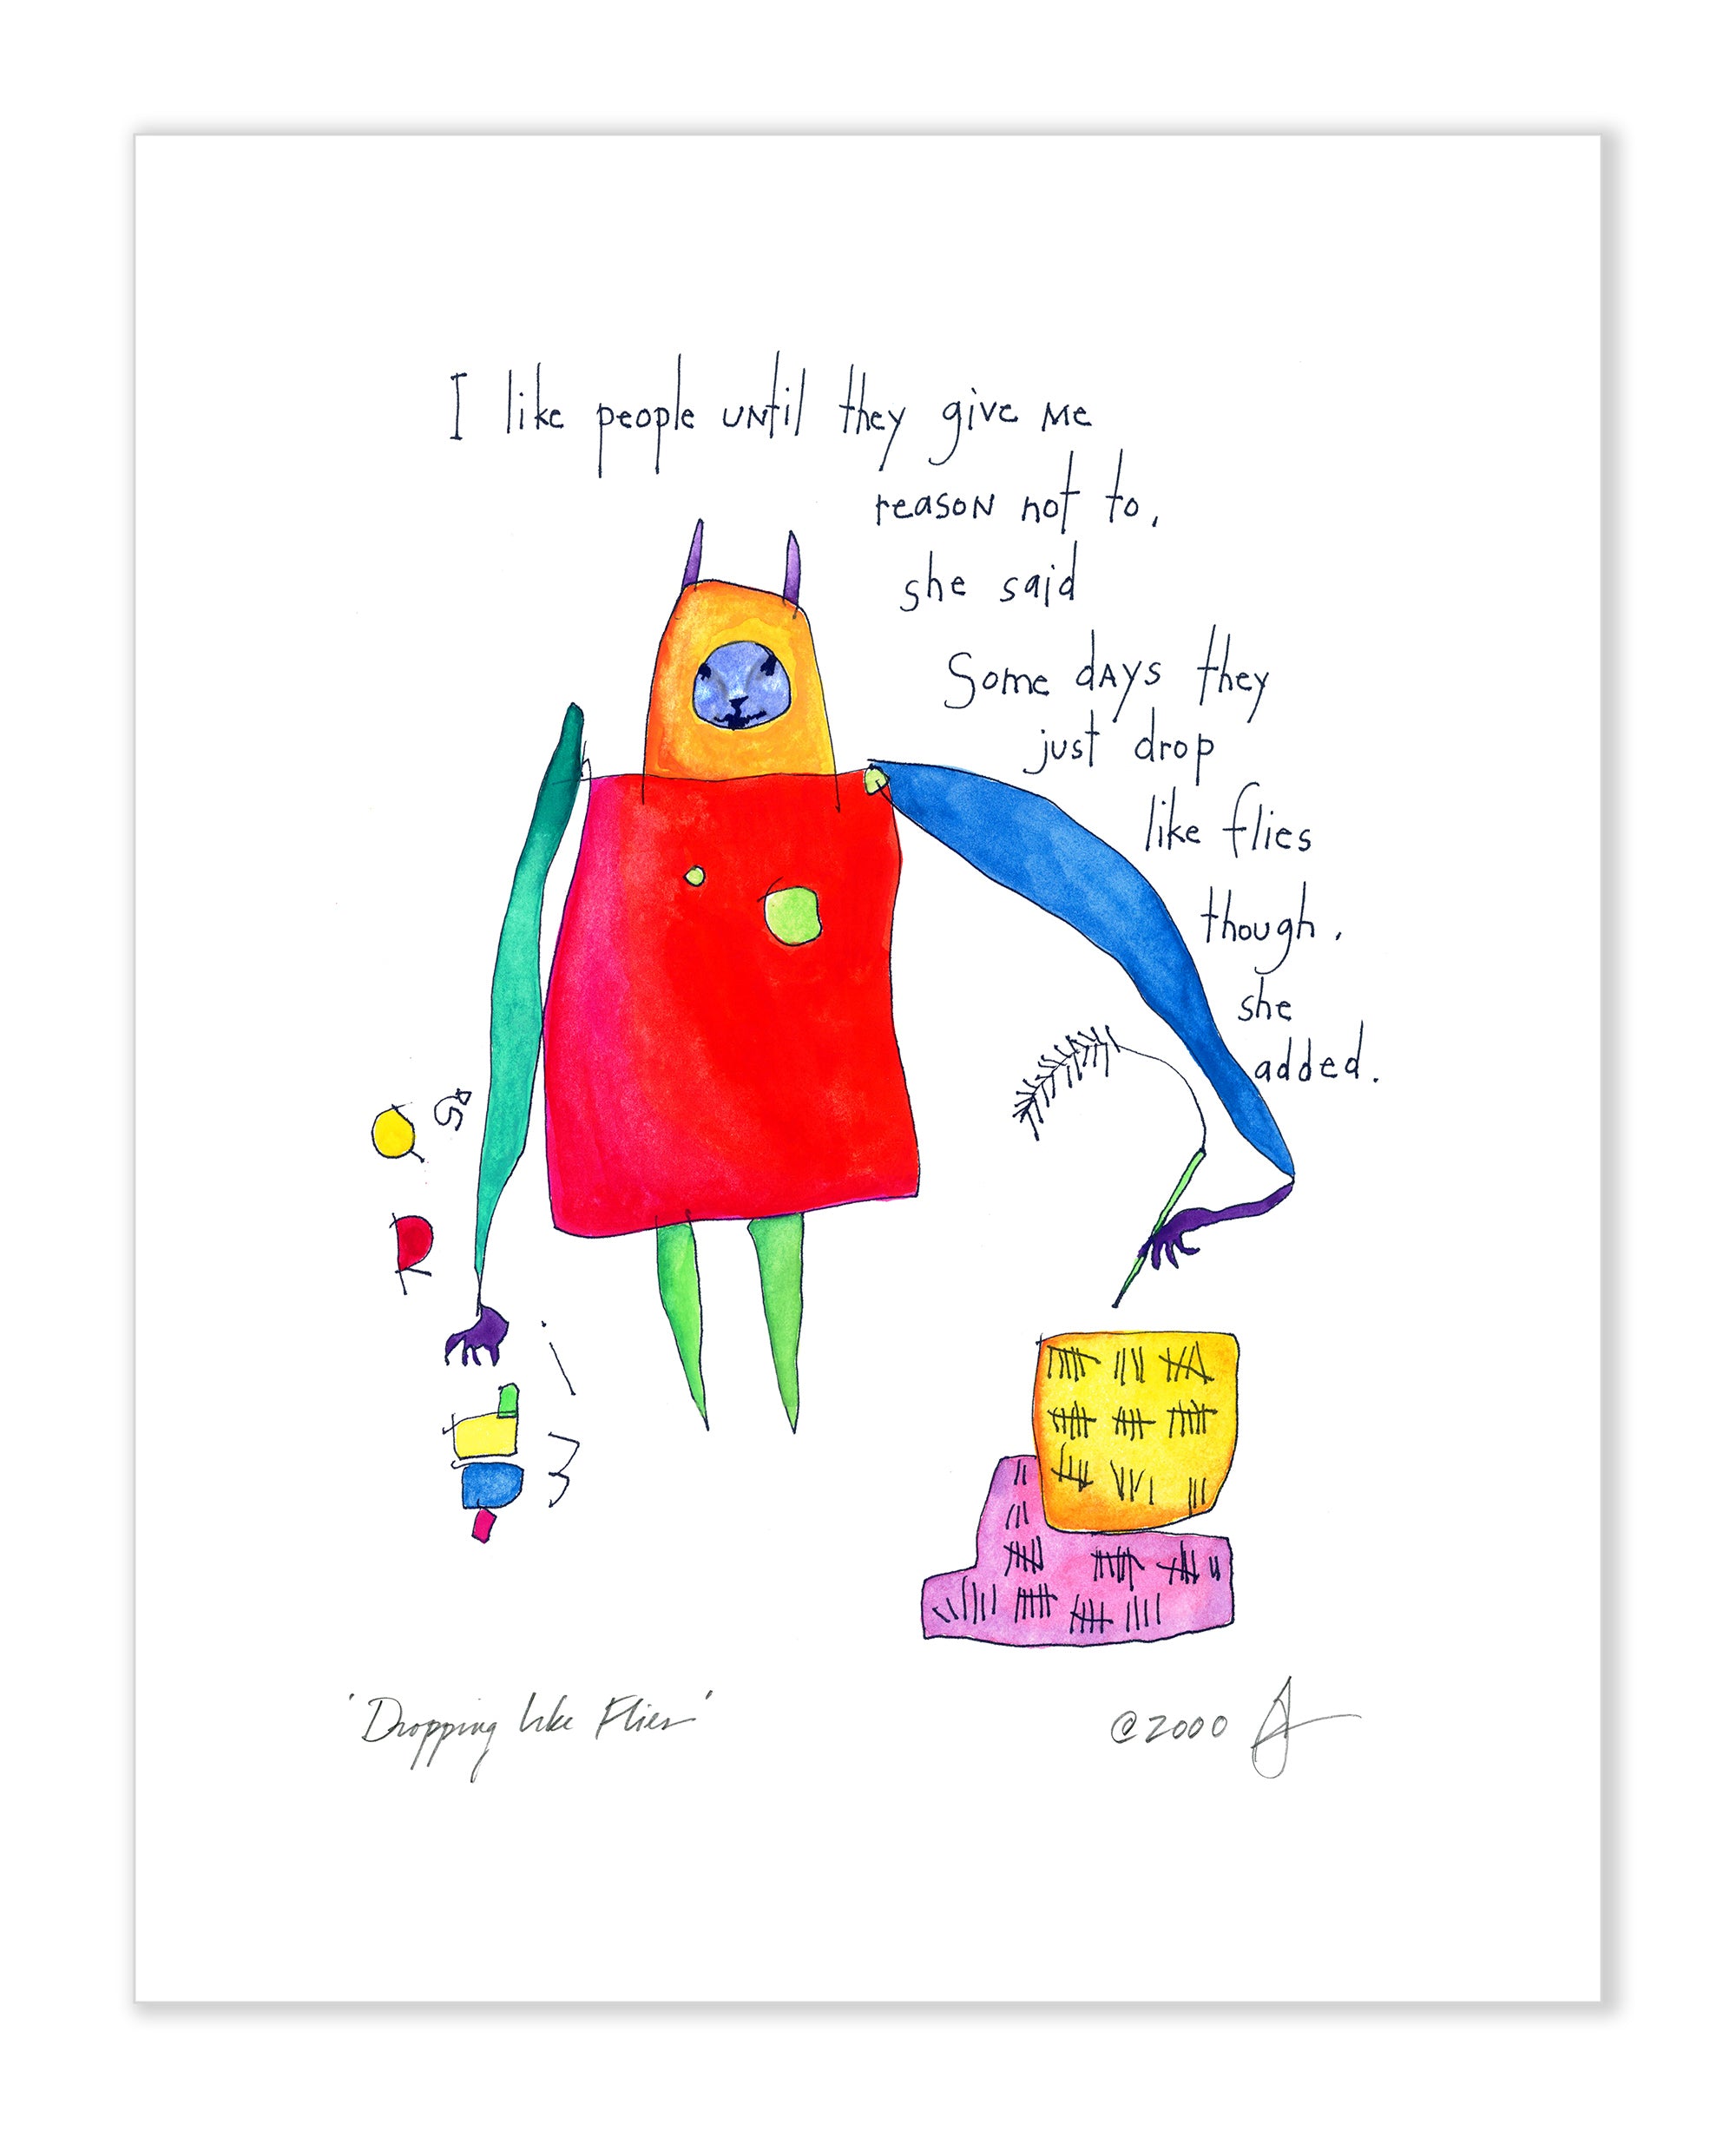 I like people until they give me
reason not to,
she said
Some days they
just drop
like flies
though.
she
added.
'Dropping like Flies'
©2000